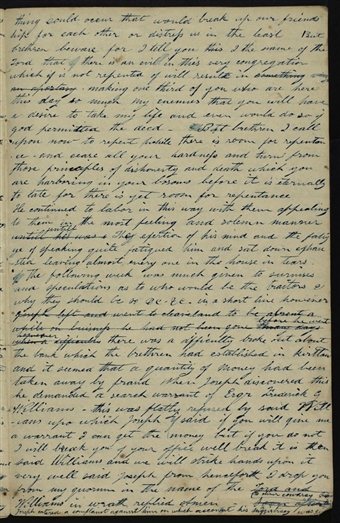 thing sould occur that would break up our friend
hip for each other or distress us in the least But
brethren beware for I tell you this I the name of the
Lord that there is an evil in this very congregation
which if is not repented of will result in something
an apostacy making one third of you who are here
this day so much my enemies that you will have
a desire to take my life and even would do so if
god permitted the deed - But brethren I call
upon now to repent while there is room for repentan
ce - and cease all your hardness and turn from
those principles of dishonesty and death which you
are harboring in your bosoms before it is eternally
to late for there is yet room for repentance
He continued to labor in this way with them appealing
to them in the most feeling and solemn manner
until The of his mind and the fatig
ue of speaking quite fatigued him and sat down
leaving almost every one in the house in tears
The following week was much given to surmises
and speculations as to who would be the traitors &
why they should be so &c. &c. in a short time however
Joseph left and went to cleaveland to be absent
while on buisness he had not been gone many days
when a difficulty there was a difficulty broke out about
the bank which the brethren had established in Kirtlan
and it seemed that a quantity of money had been
taken away by fraud When Joseph discovered this
he demanded a search warrant of Esqr Frederick G
Williams - this was flatly refused by said Will
iams upo which Joseph said if you will give me
a warrant I can get the money but if you do not
I will break you of your office well break it is then
said Williams and we will strike hands upon it
very well said Joseph from henceforth I drop you
from my quorum in the name of the Lord
Williams in wrath replied Amen
Joseph entered a complaint against him on which account his was